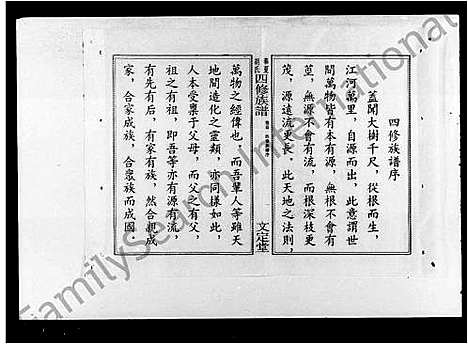 四修族譜序
蓋聞大樹千尺，從根而生，
江河萬里，自源而出，此意謂世
間萬物皆有本有源，無根不會有
莖，無源不會有流，而根深枝更
茂，源遠流更長。此天地之法則，
四修族譜
文定堂
萬物之經偉也，而吾輩人等雖天
地間造化之靈類，亦同樣如此，
人本受稟于父母，而父之有父，
祖之有祖，即吾等亦有源有流，
有先有后，有家有族，然合親成
家，合家成族，合眾族而成國
FamilySearch International